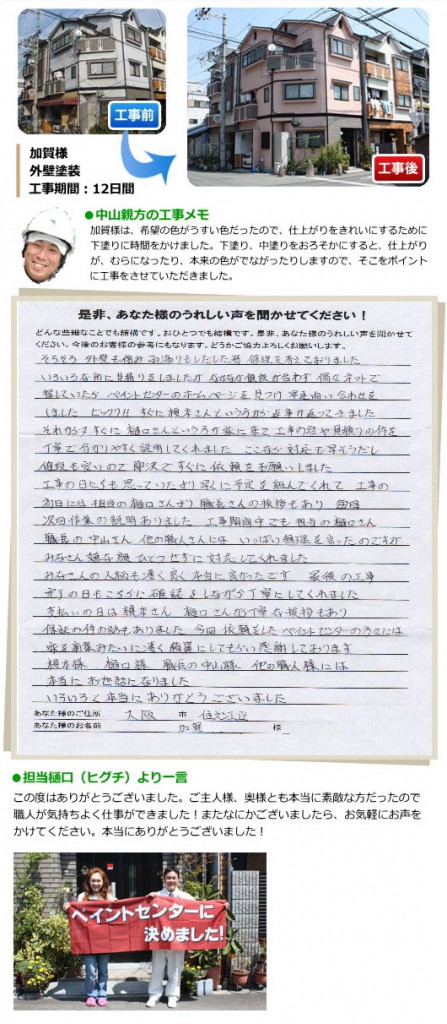 工事前
工事後
加賀様
外壁塗装
工事期間：12日間
●中山親方の工事メモ
加賀様は、希望の色がうすい色だったので、仕上がりをきれいにするために
下塗りに時間をかけました。下塗り、中塗りをおろそかにすると、仕上がり
が、むらになったり、本来の色がでながったりしますので、そこをポイント
に工事をさせていただきました。
是非、あなた様のうれしい声を聞かせてください！
どんな些細なことでも結構です。おひとつでも結構です。是非、あなた様のうれしい声を聞かせて
ください。今後のお客様の参考にもなります。どうかご協力よろしくお願いします。
そろそろ 外壁も傷み 雨漏りもしだした為 修理を考えておりました
いろいろな所に見積りをしましたが なかなか値段が合わず 偶々ネットで
探していたら ペイントセンターのホームページを見つけ 早速問い合わせを
しました ビックリ!! すぐに榎本さんという方から返事が返ってきました
それから すぐに 樋口さんという方が家に来て 工事内容や見積りの件を
丁寧で分かりやすく説明してくれました ここなら対応も早そうだし
値段も安いので 即決ですぐに依頼をお願いしました
工事の日にちも思っていたより早くに予定を組んでくれて 工事の
初日には担当の樋口さんより職長さんの挨拶もあり 毎回
次回作業の説明ありました 工事期間中でも 担当の樋口さん
職長の中山さん 他の職人さんには いっぱい無理を言ったのですが
みなさん嫌な顔ひとつせずに対応してくれました
みなさんの人柄も凄く良く本当に良かったです 最後の工事
完了の日もこちらに確認をしながら丁寧にしてくれました
支払いの日は榎本さん 樋口さんから丁寧な挨拶もあり
保証の件の話もありました 今回依頼をしたペイントセンターの方々には
家を新築みたいに凄く綺麗にしてもらい感謝しております
榎本様 樋口様 職長の中山様 他の職人様には
本当にお世話になりました
いろいろと本当にありがとうございました
あなた様のご住所 大阪 市 住之江区
あなた様のお名前 加賀 様
●担当樋口（ヒグチ）より一言
この度はありがとうございました。ご主人様、奥様とも本当に素敵な方だったので
職人が気持ちよく仕事ができました！またなにかございましたら、お気軽にお声を
かけてください。本当にありがとうございました！
ペイントセンターに
決めました!